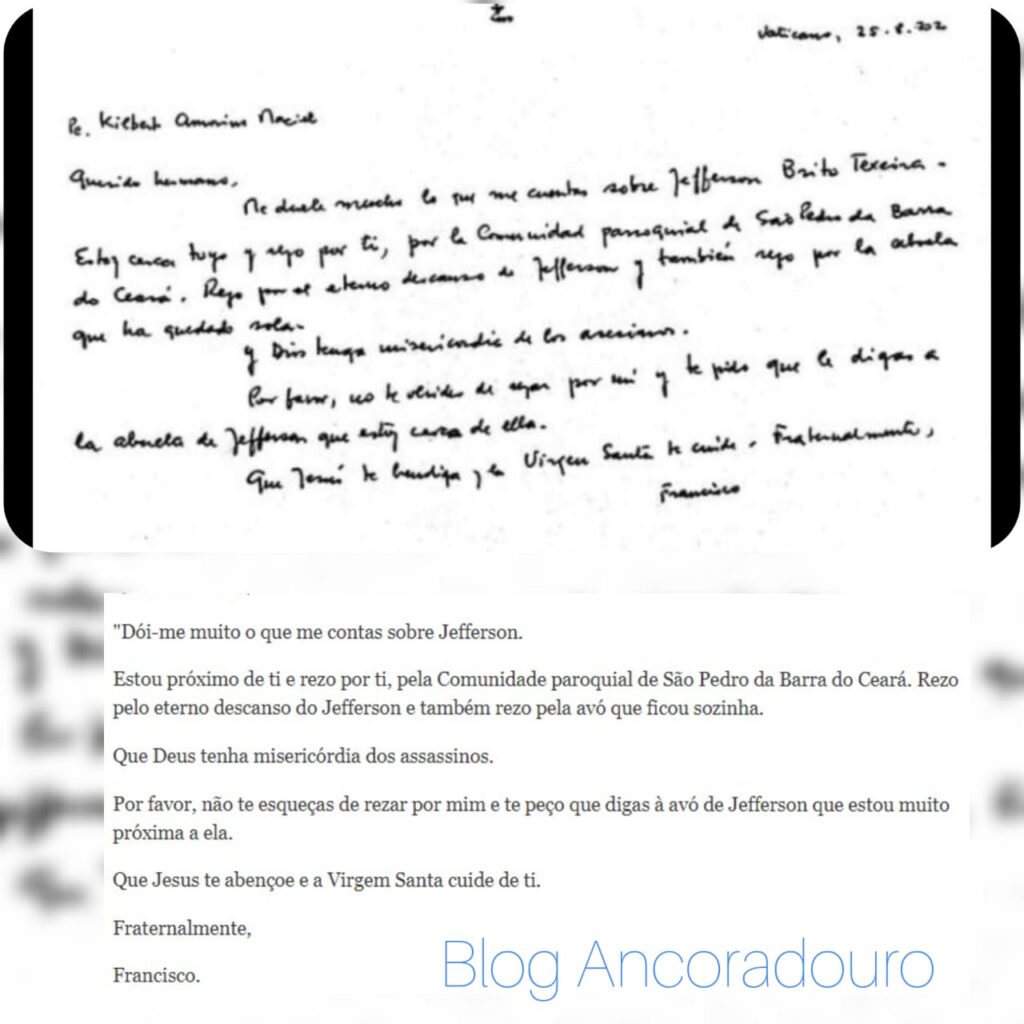 Vaticano, 25.8.202
Pe. Kilbert Amorim Maciel
Querido hermano,
Me duele mucho lo que me cuentas sobre Jefferson Brito Texeira.
Estoy cerca tuyo y rezo por ti, por la Comunidad parroquial de São Pedro da Barra
do Ceará. Rezo por el eterno descanso de Jefferson y también rezo por la abuela
que ha quedado sola.
y Dios tenga misericordia de los asesinos.
Por favor, no te olvides de rezar por mí y te pido que le digas a
la abuela de Jefferson que estoy cerca de ella.
Que Jesús te bendiga y la Virgen Santa te cuide. Fraternalmente,
Francisco
"Dói-me muito o que me contas sobre Jefferson.
Estou próximo de ti e rezo por ti, pela Comunidade paroquial de São Pedro da Barra do Ceará. Rezo
pelo eterno descanso do Jefferson e também rezo pela avó que ficou sozinha.
Que Deus tenha misericórdia dos assassinos.
Por favor, não te esqueças de rezar por mim e te peço que digas à avó de Jefferson que estou muito
próxima a ela.
Que Jesus te abençoe e a Virgem Santa cuide de ti.
Fraternalmente,
Francisco.
Blog Ancoradouro